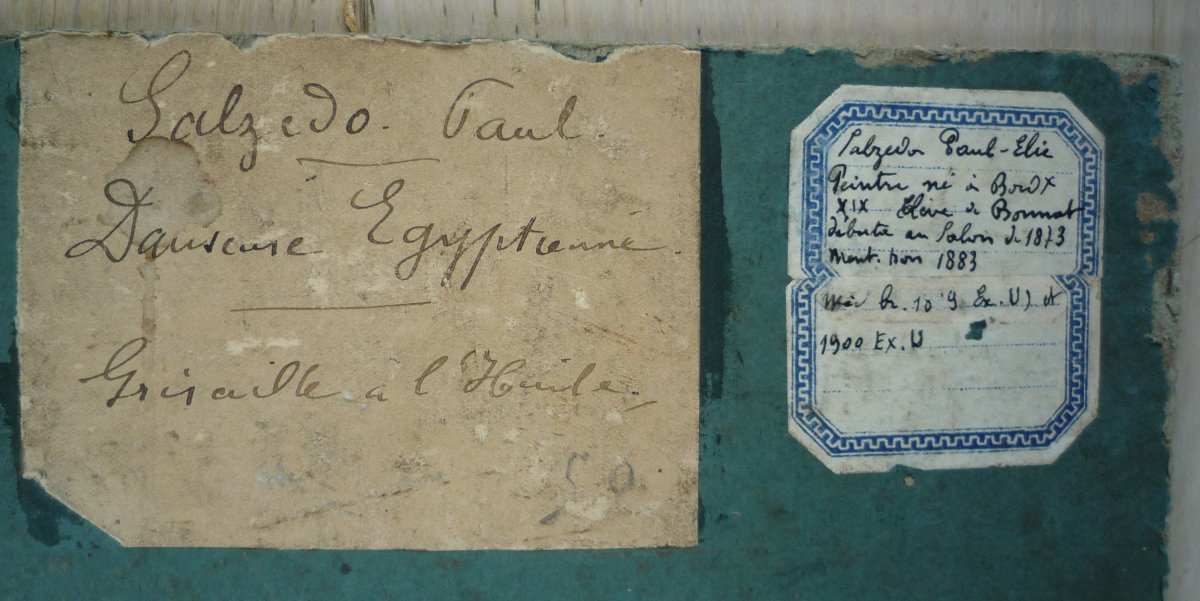 Salzedo. Paul.
Danseuse Egyptienne.
Grisaille à l'Huile.
50
Salzedo Paul-Elie
Peintre né à Bordx
XIX Elève de Bonnat
débute au Salon de 1873
Ment. hon 1883
br. 1889 Ex. U) et
1900 Ex. U